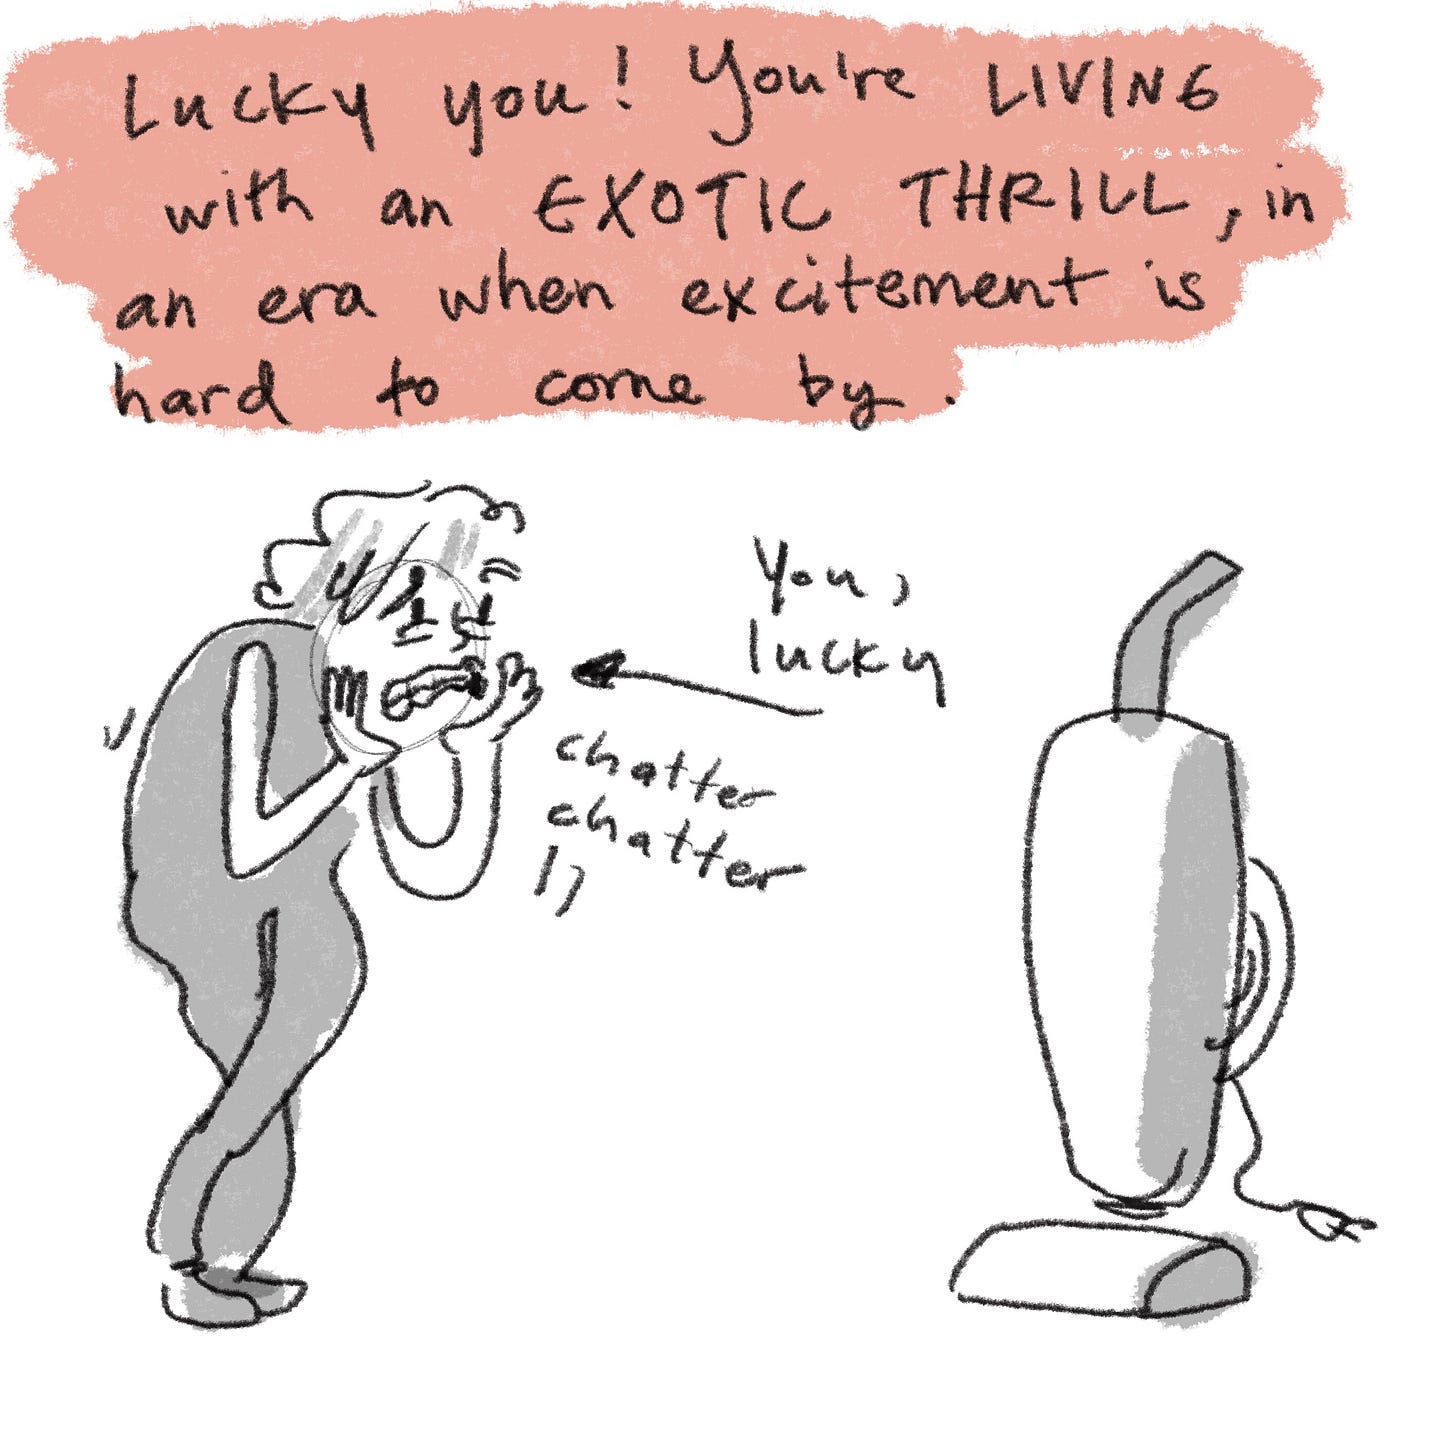 Lucky you! You're LIVING
with an EXOTIC THRILL, in
an era when excitement is
hard to come by.
You,
lucky
chatter
chatter